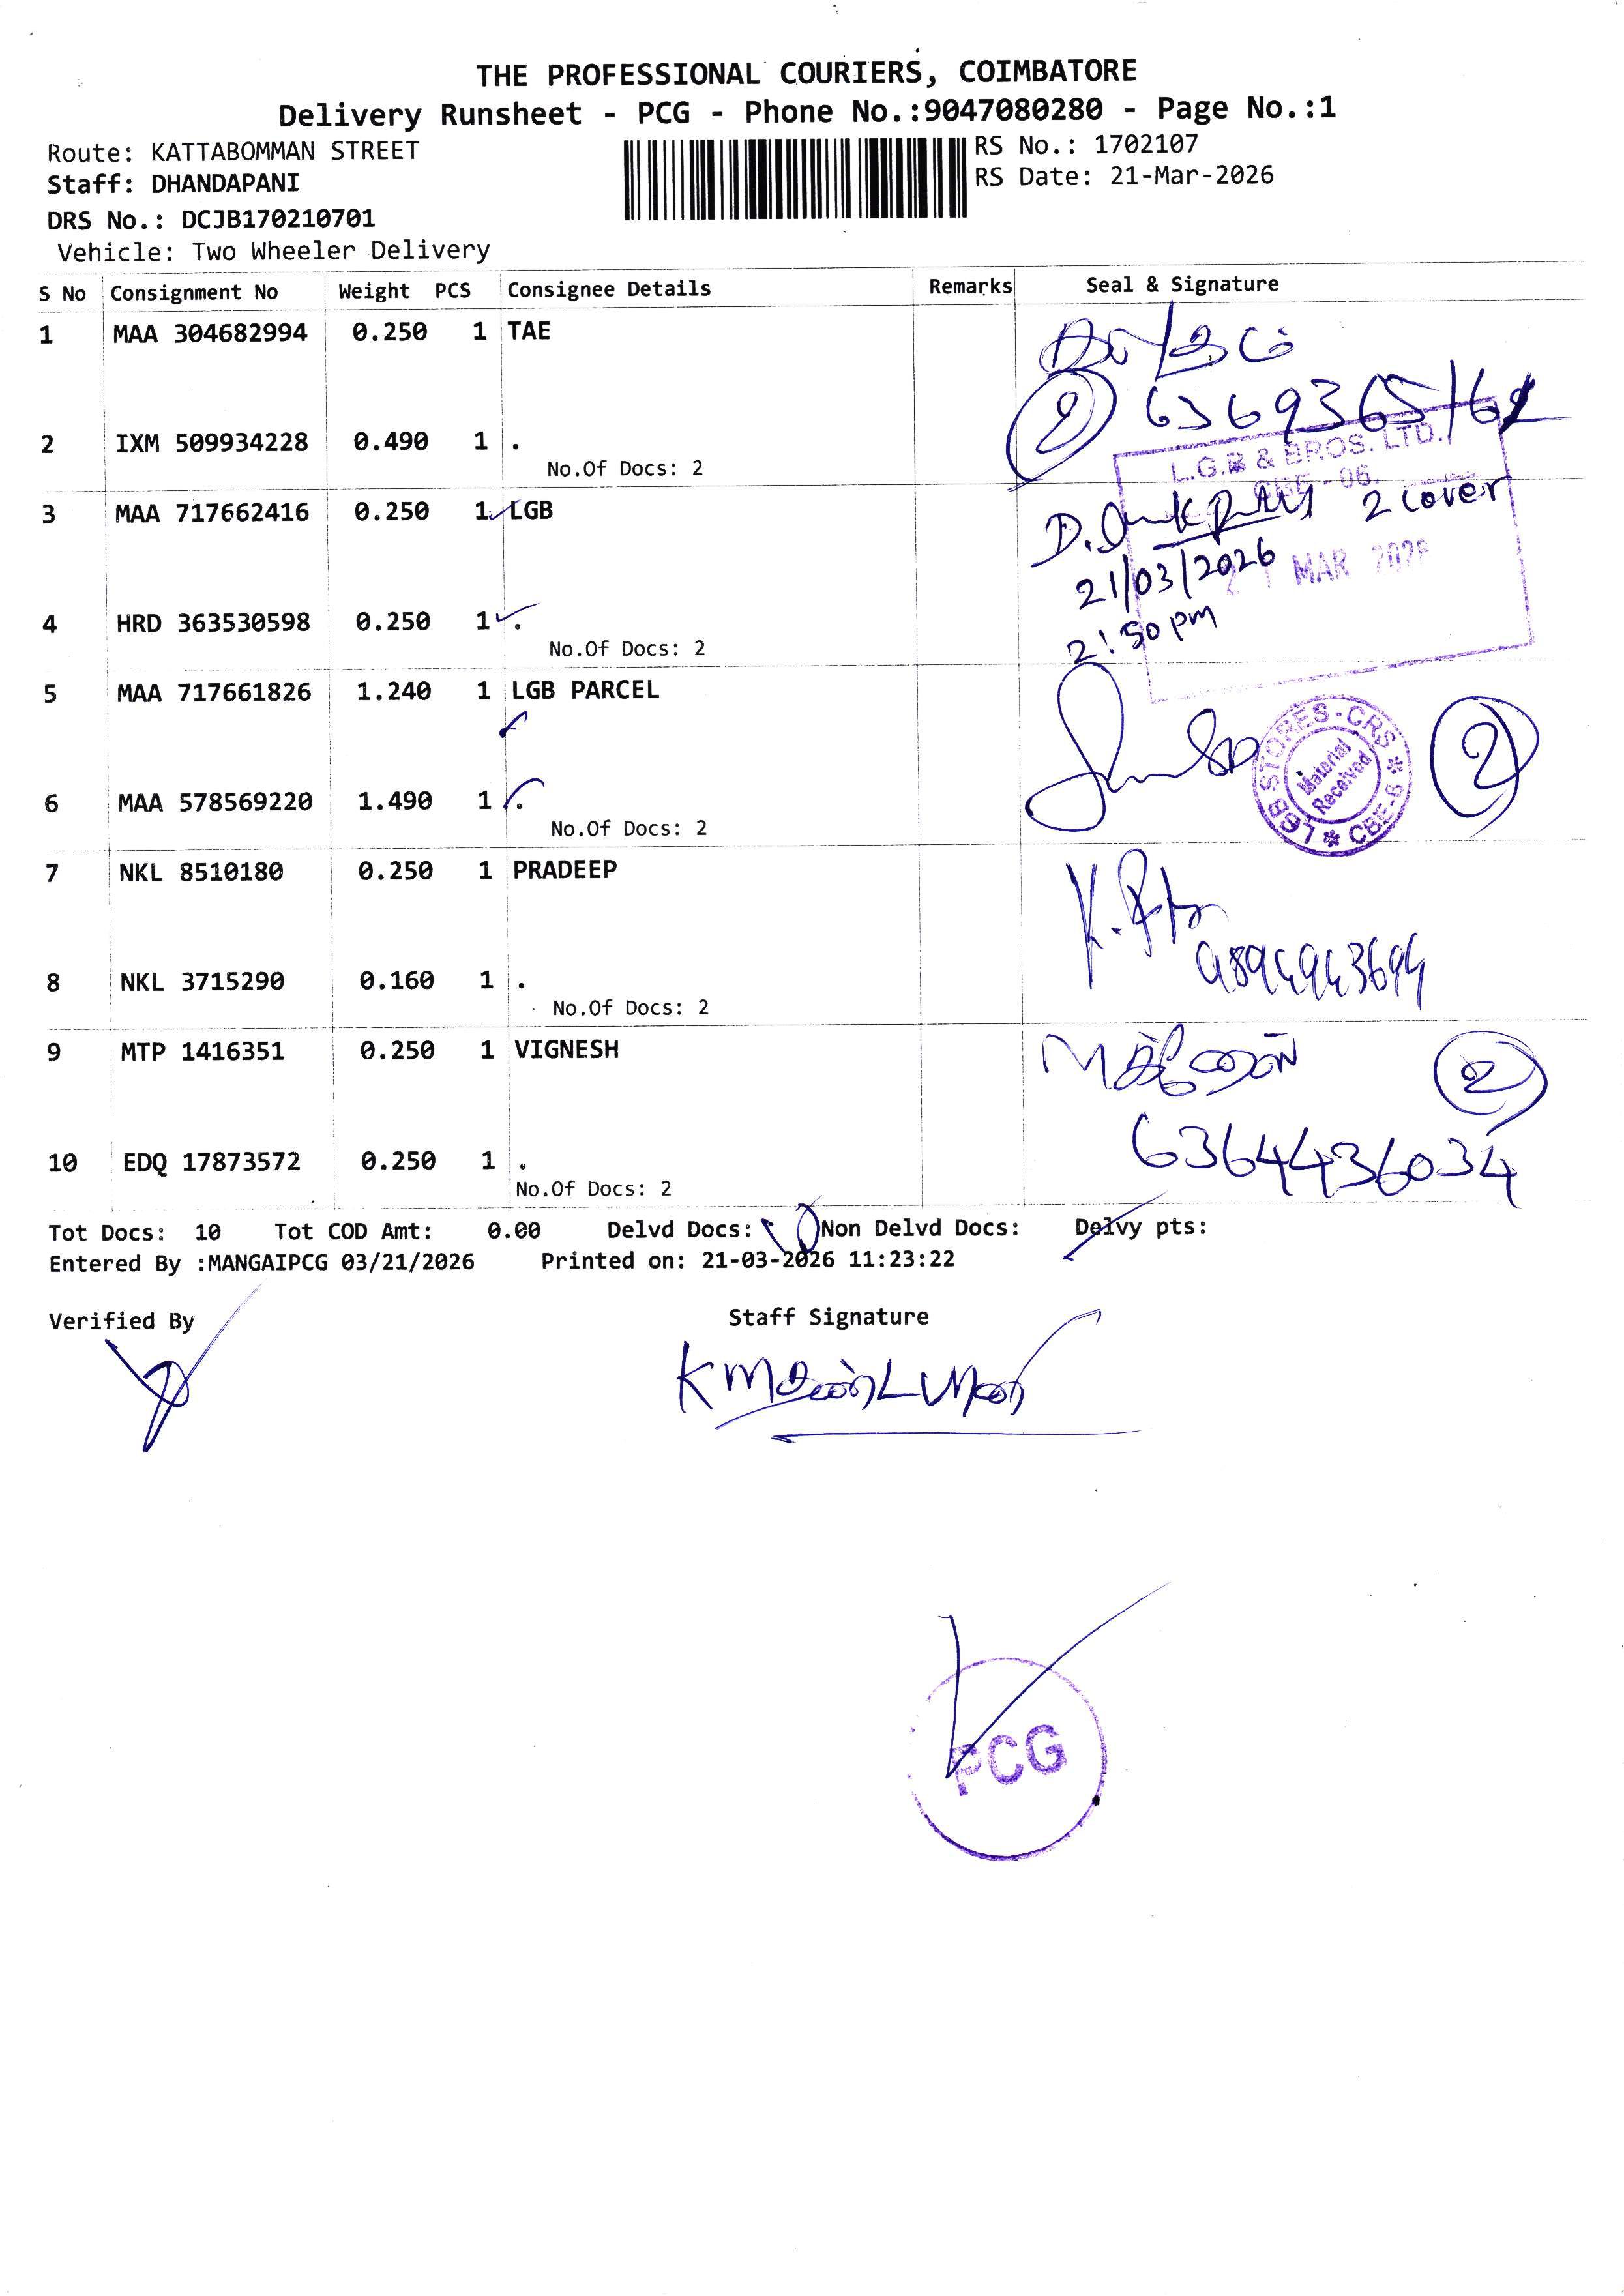 THE PROFESSIONAL COURIERS, COIMBATORE
Delivery Runsheet - PCG - Phone No.:9047080280 - Page No.:1
Route: KATTABOMMAN STREET
RS No.: 1702107
Staff: DHANDAPANI
RS Date: 21-Mar-2026
DRS No.: DCJB170210701
Vehicle: Two Wheeler Delivery
S No Consignment No Weight PCS Consignee Details Remarks Seal & Signature
1 MAA 304682994 0.250 1 TAE
2
2 IXM 509934228 0.490 1 .
No.Of Docs: 2
L.G.B & BROS. LTD.,
CBE - 06.
3 MAA 717662416 0.250 1 LGB
2 cover
21/03/2026
21 MAR 2026
4 HRD 363530598 0.250 1 .
2:50 pm
No.Of Docs: 2
5 MAA 717661826 1.240 1 LGB PARCEL
LGB STORES-CRS * CBE-6 *
Material Received
2
6 MAA 578569220 1.490 1 .
No.Of Docs: 2
7 NKL 8510180 0.250 1 PRADEEP
9894943694
8 NKL 3715290 0.160 1 .
No.Of Docs: 2
9 MTP 1416351 0.250 1 VIGNESH
2
6364436034
10 EDQ 17873572 0.250 1 .
No.Of Docs: 2
Tot Docs: 10 Tot COD Amt: 0.00 Delvd Docs: Non Delvd Docs: Delvy pts:
Entered By :MANGAIPCG 03/21/2026 Printed on: 21-03-2026 11:23:22
Verified By Staff Signature
PCG